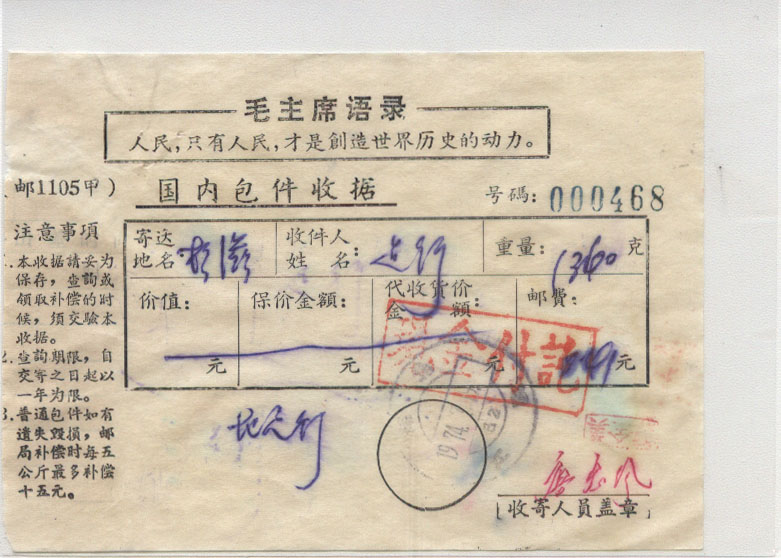 毛主席语录
人民，只有人民，才是創造世界历史的动力。
邮1105甲)
国内包件收据
号碼：000468
注意事項
本收据請妥为
保存，查詢或
領取补偿的时
候，须交驗本
收据。
2.查詢期限，自
交寄之日起以
一年为限。
3.普通包件如有
遗失毁損，邮
局补偿时每五
公斤最多补偿
十五元。
寄达
地名：
收件人
姓 名：
重量：1360克
价值：
元
保价金額：
元
代收货价
金 額：
元
邮費：
元
現金付訖
1974
收寄人員盖章